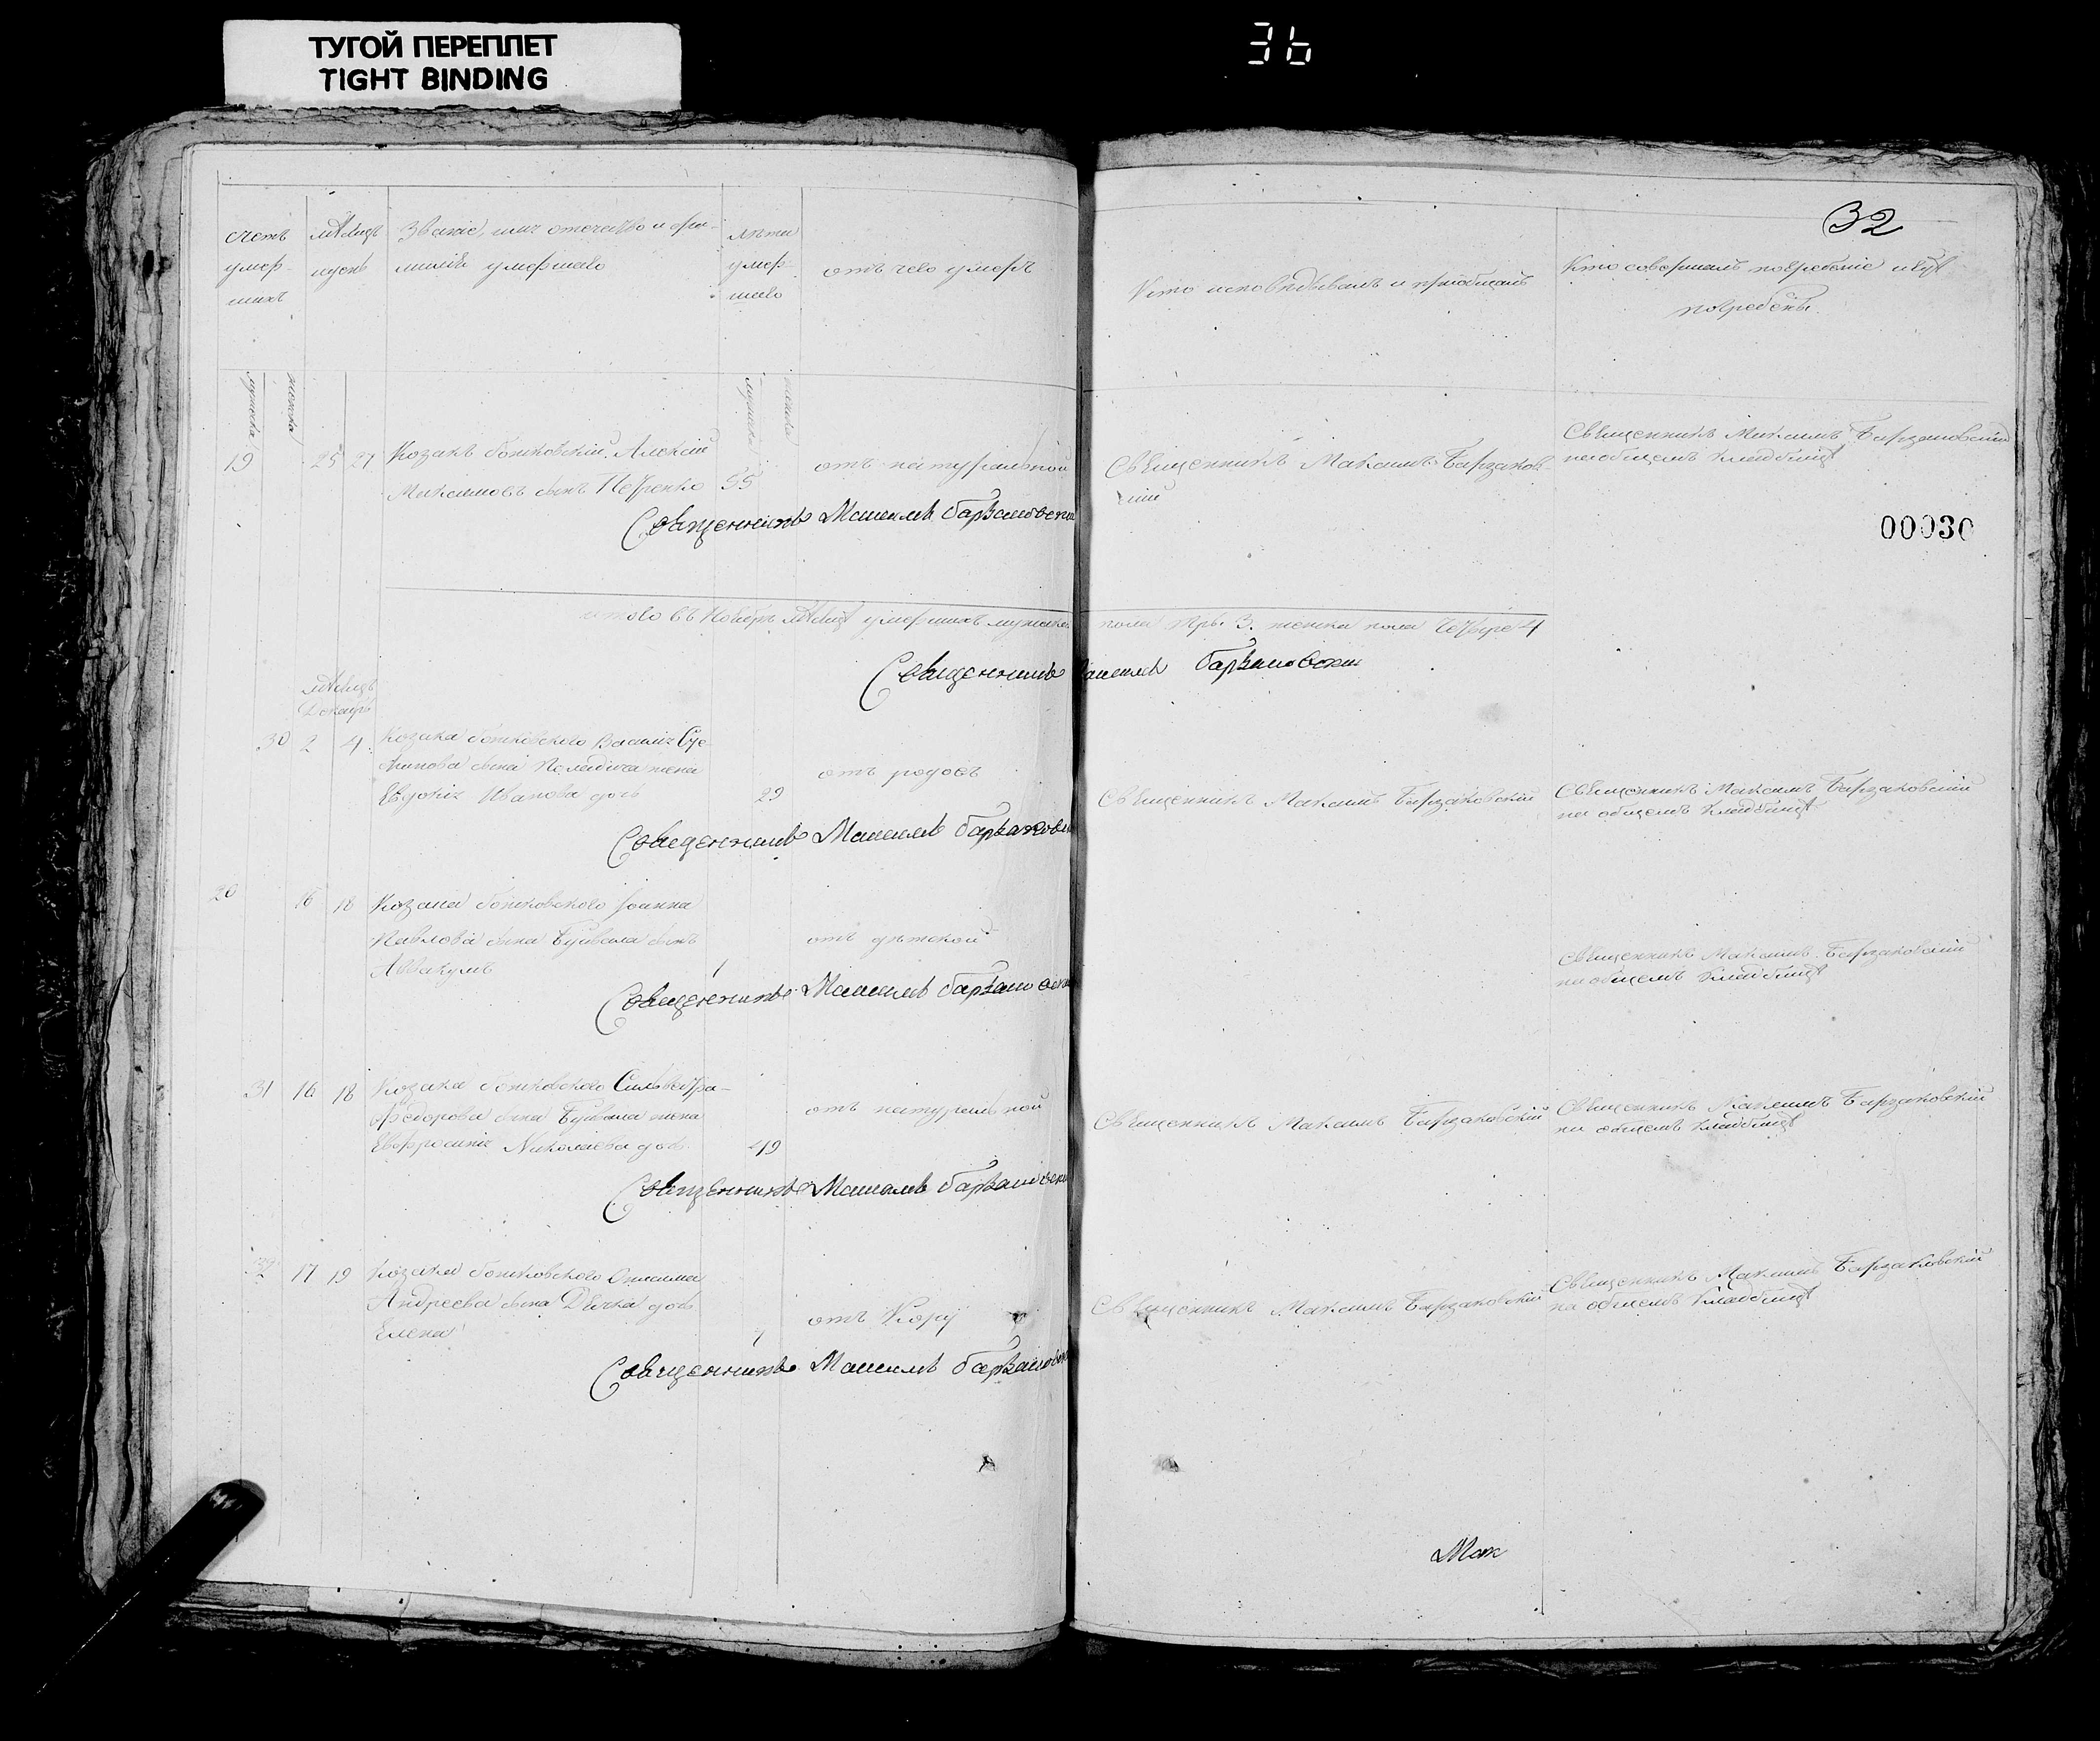 ТУГОЙ ПЕРЕПЛЕТ
TIGHT BINDING
36
32
счетъ умер-шихъ
мѣсяцъ и день
Званіе, имя отечество и фа-
милія умершаго
лѣта умер-шаго
отъ чего умеръ
Кто исповѣдывалъ и пріобщалъ
Кто совершалъ погребеніе и гдѣ
погребены.
мужеска
женска
мужеска
женска
19 25 27 Козакъ Алексій
Максимовъ сынъ Петренко 55 отъ натуральной
Священникъ Максимъ Барзаков-
скій
Священникъ Максимъ Барзаковскій
на общемъ кладбищѣ
Священникъ Максимъ Барзаковски
00030
итого въ Ноябрѣ мѣсяцѣ умершихъ мужеска пола три 3. женска пола четыре 4
Священникъ Максимъ Барзаковски
мѣсяцъ
Декабрь
30 2 4 Козака Василія
сына жена
Евдокія Иванова дочь 29
отъ родовъ
Священникъ Максимъ Барзаковскій
Священникъ Максимъ Барзаковскій
на общемъ кладбищѣ
Священникъ Максимъ Барзаковски
20 16 18 Козака Іоанна
Павлова сына Буивала сынъ
Аввакумъ 1
отъ дѣтской
Священникъ Максимъ Барзаковскій
на общемъ кладбищѣ
Священникъ Максимъ Барзаковски
31 16 18 Козака Сильвестра
Федорова сына Буивала жена
Евфросинія Николаева дочь 49
отъ натуральной
Священникъ Максимъ Барзаковскій
Священникъ Максимъ Барзаковскій
на общемъ кладбищѣ
Священникъ Максимъ Барзаковски
32 17 19 Козака
Андреева сына дочь
Елена
отъ Кору
Священникъ Максимъ Барзаковскій
Священникъ Максимъ Барзаковскій
на общемъ кладбищѣ
Священникъ Максимъ Барзаковски
Мак